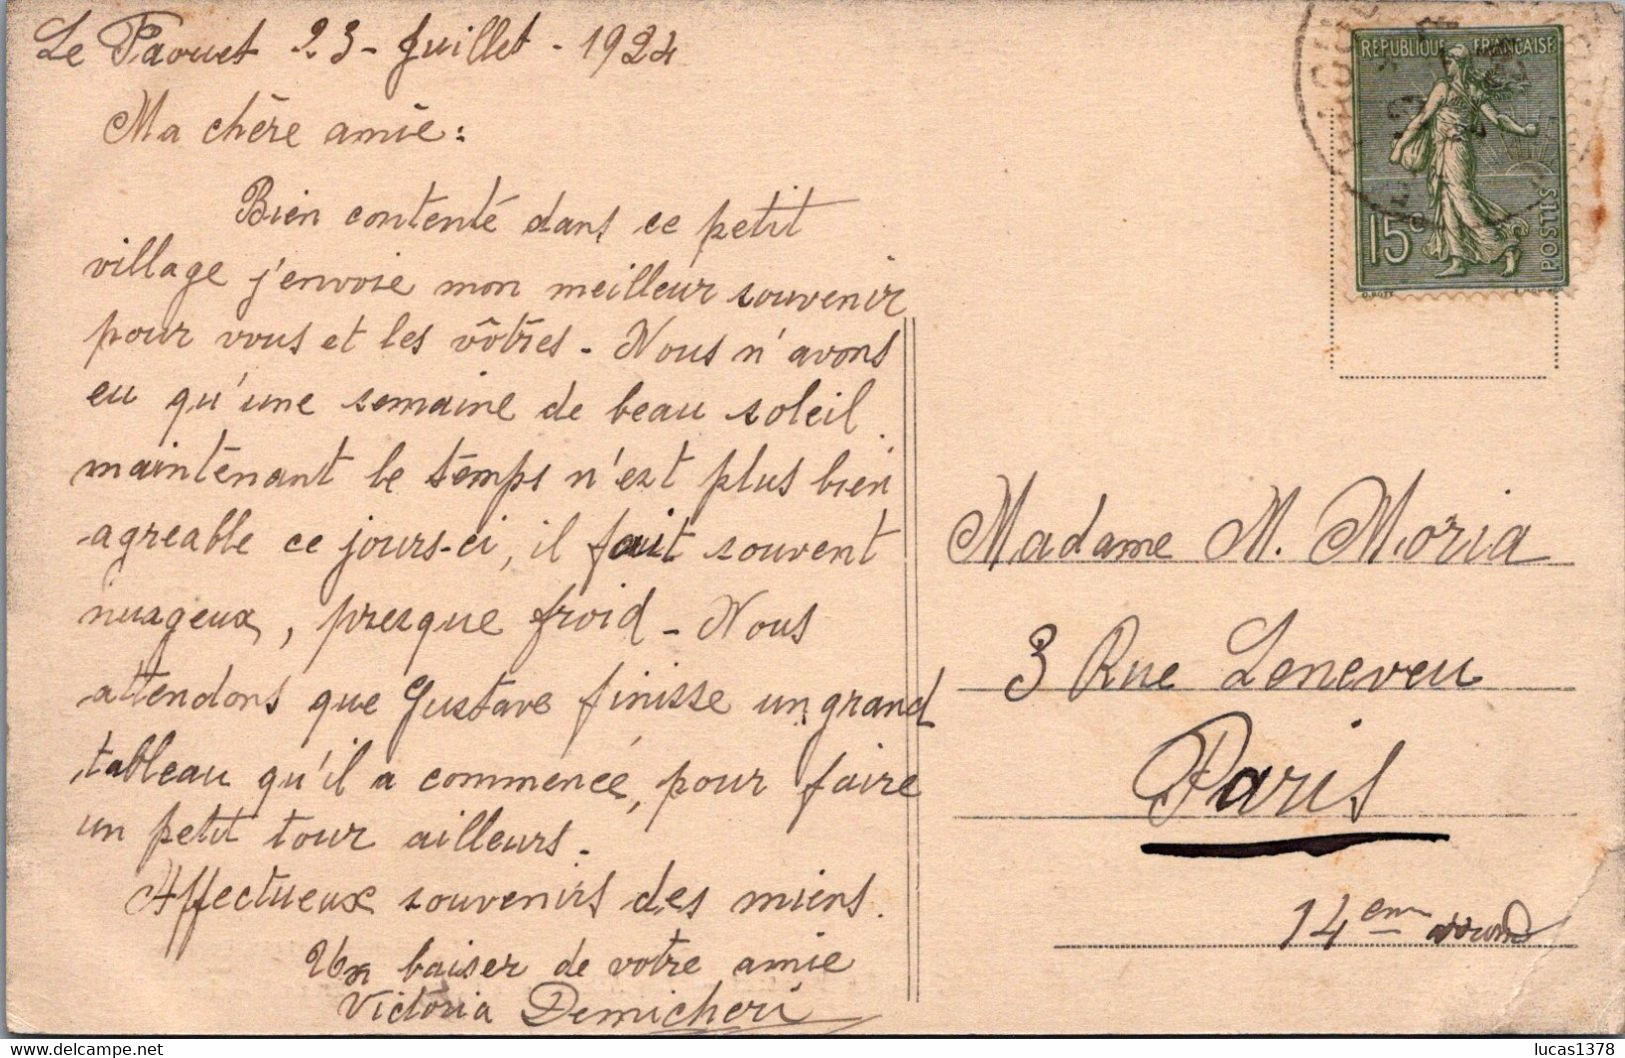 Le Faouet 23 - Juillet - 1924
Ma chère amie :
Bien contenté dans ce petit
village j'envoie mon meilleur souvenir
pour vous et les vôtres - Nous n'avons
eu qu'une semaine de beau soleil.
maintenant le temps n'est plus bien
agreable ce jours-ci, il fait souvent
nuageux, presque froid - Nous
attendons que Gustave finisse un grand
tableau qu'il a commencé, pour faire
un petit tour ailleurs -
Affectueux souvenirs des miens.
Un baiser de votre amie
Victoria Demicheri
REPUBLIQUE FRANÇAISE
15c
POSTES
O. ROTY
Madame M. Moria
3 Rue Leneveu
Paris
14em arrond
lucas1378